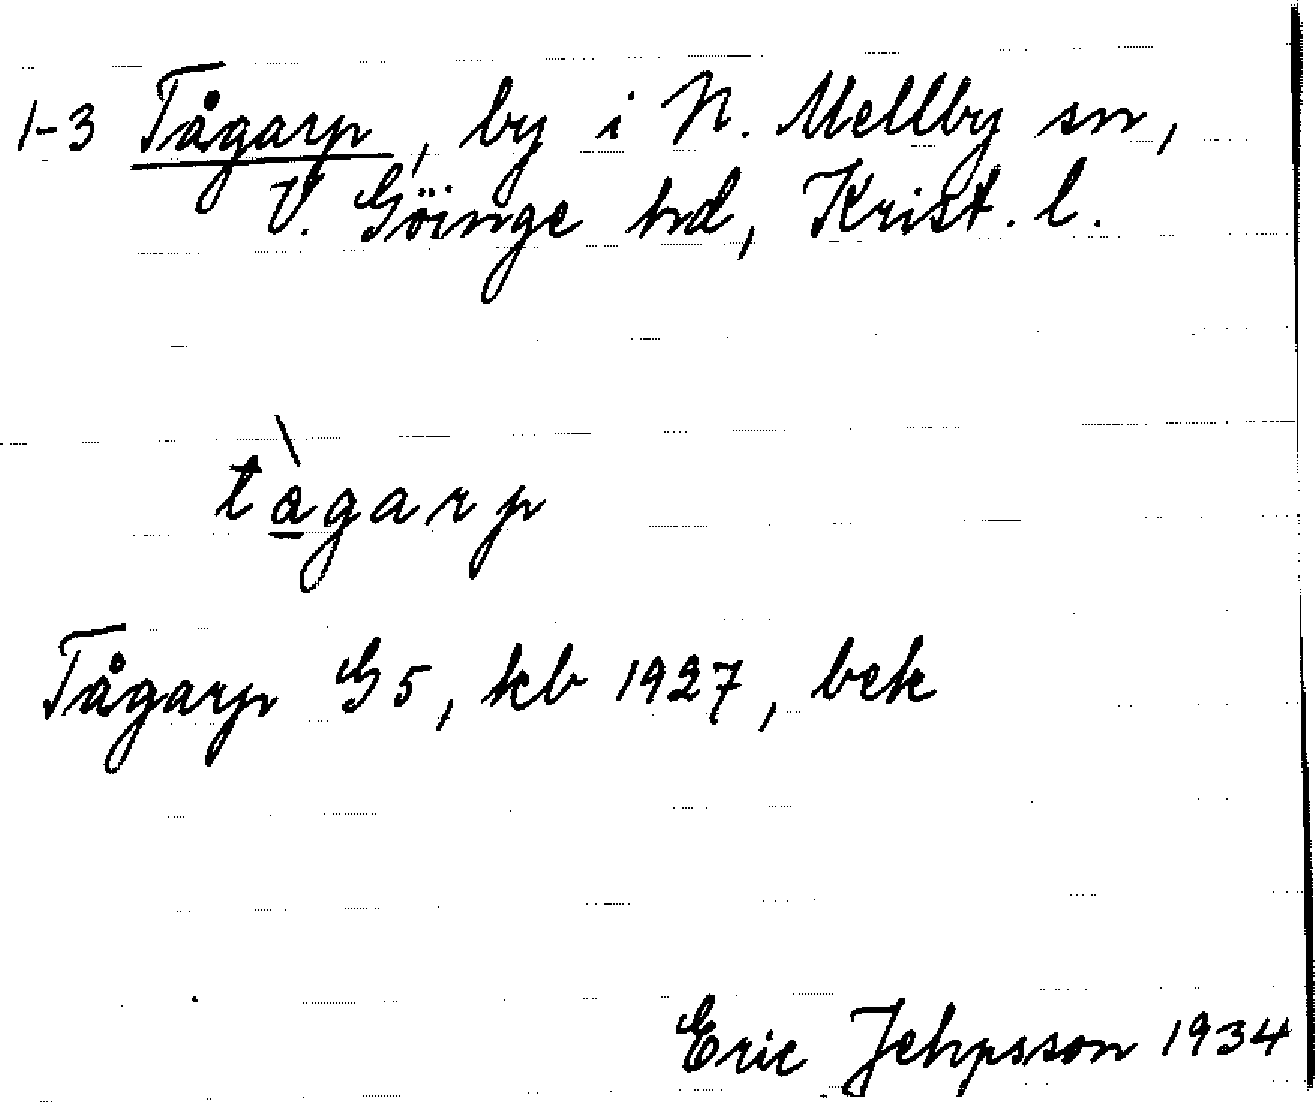 1-3 Tågarp, by i N. Mellby sn,
V. Göinge hd, Krist. l.
tàgarp
Tågarp G5, kb 1927, bek
Eric Jehpsson 1934